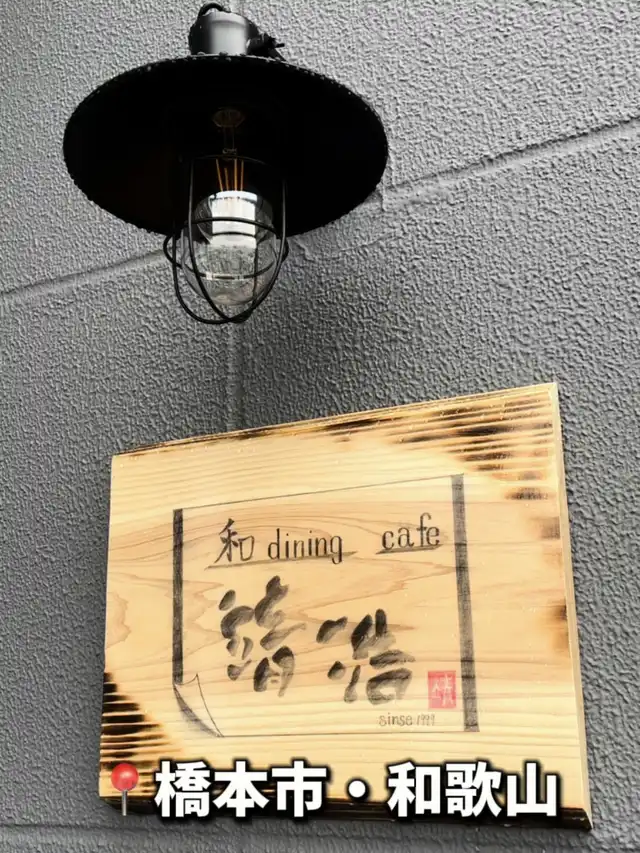 和 dining cafe
sinse 1999
📍橋本市・和歌山